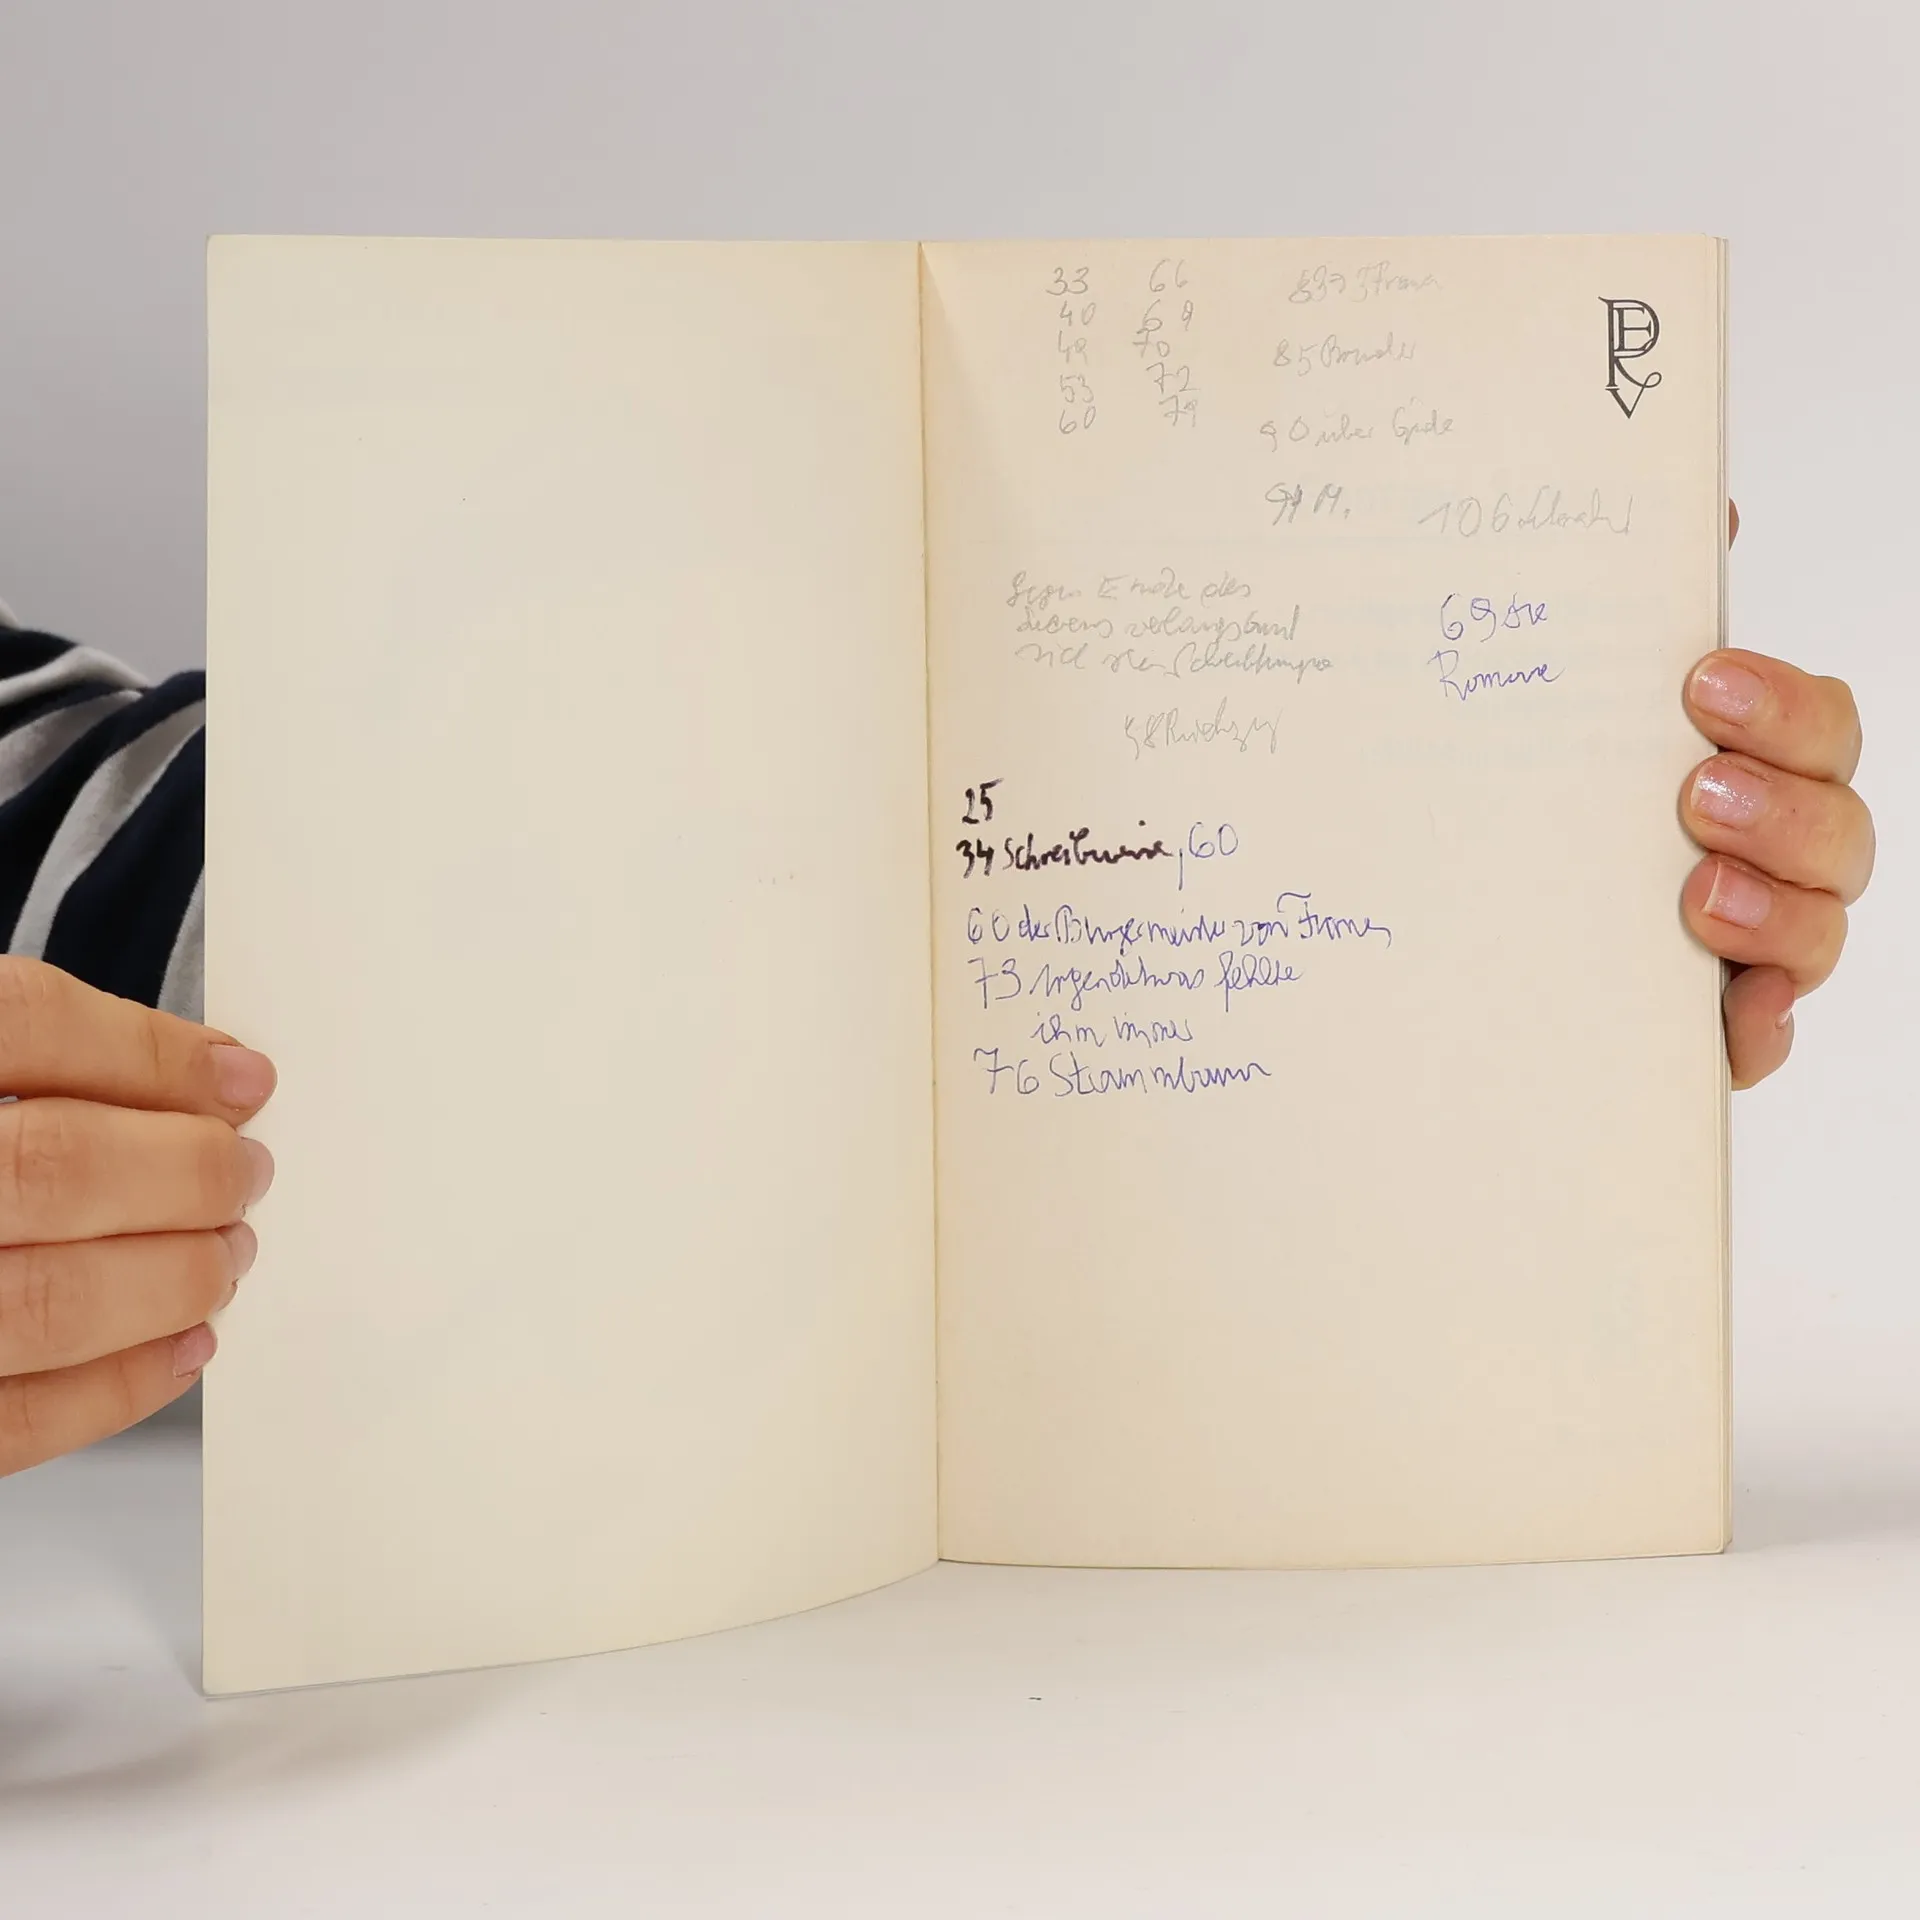 33 66
40 69
49 70
53 72
60 79
85 Bruder
90 über Gide
91 M.
106
Gegen Ende des
Lebens verlangsamt
sich sein Schreibtempo
69 die
Romane
25
34 Schreibweise, 60
60 der Bürgermeister von Furnes
73 Irgendetwas fehlte
ihm immer
76 Stammbaum